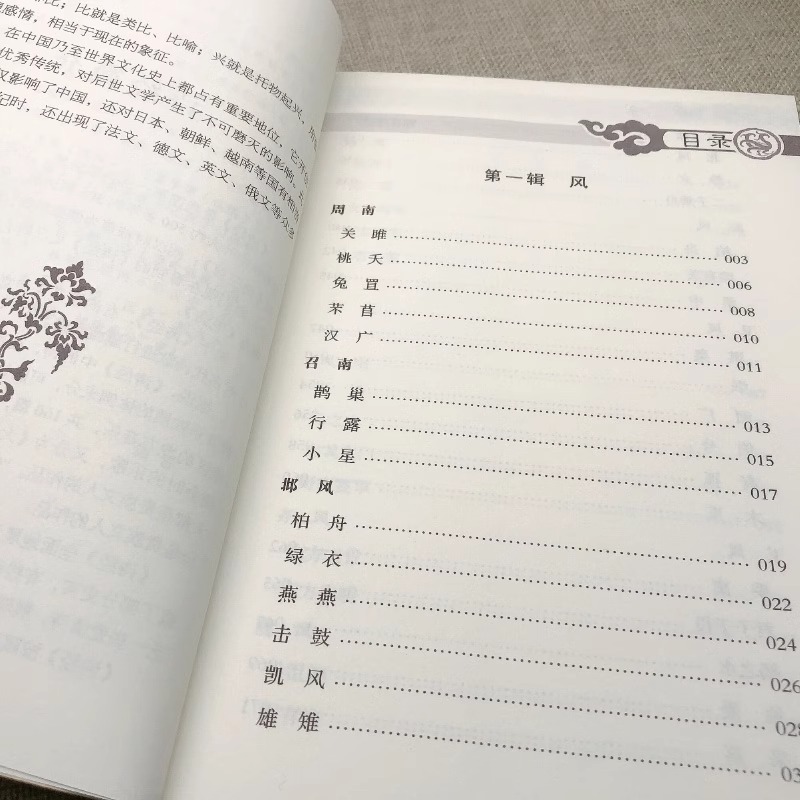 比；比就是类比、比喻；兴就是托物起兴，
感情，相当于现在的象征。
在中国乃至世界文化史上都占有重要地位，它
优秀传统，对后世文学产生了不可磨灭的影响。
仅影响了中国，还对日本、朝鲜、越南等国有
纪时，还出现了法文、德文、英文、俄文等众
目录
第一辑 风
周南
关雎……003
桃夭……006
兔罝……008
芣苢……010
汉广……011
召南
鹊巢……013
行露……015
小星……017
邶风
柏舟……019
绿衣……022
燕燕……024
击鼓……026
凯风……028
雄雉……03